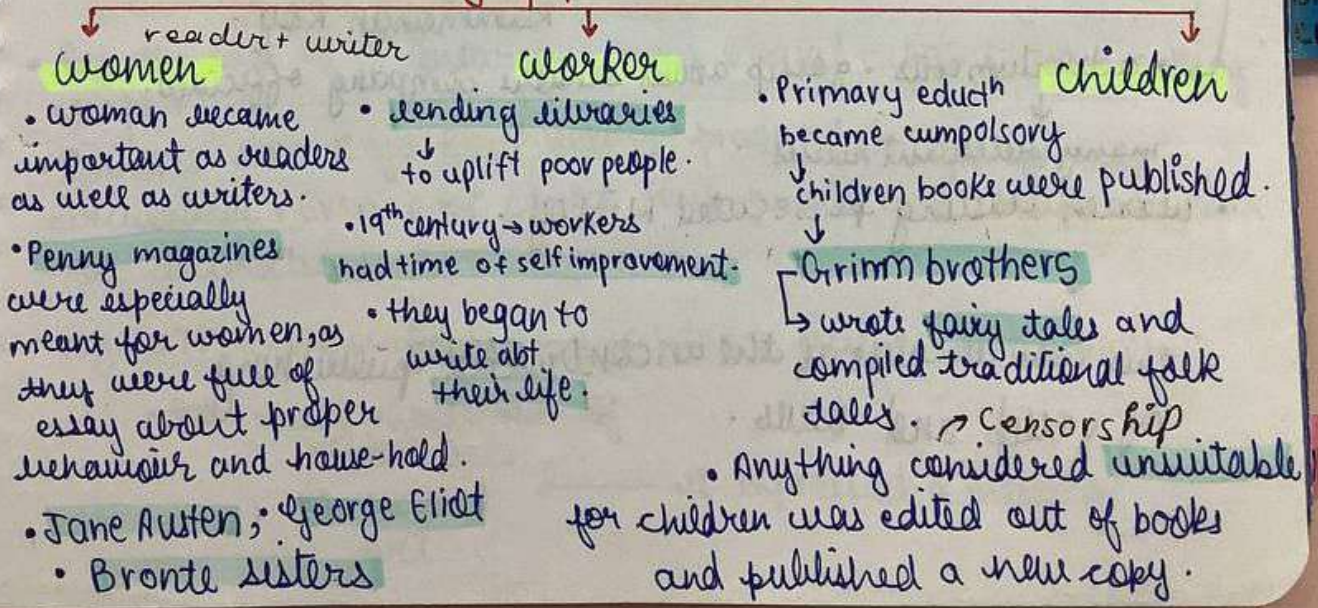 reader + writer
women
• woman became
important as readers
as well as writers.
• Penny magazines
were especially
meant for women, as
they were full of
essay about proper
behaviour and house-hold.
• Jane Austen, • George Eliot
• Bronte sisters
worker
• lending libraries
↓
to uplift poor people.
• 19th century → workers
had time of self improvement.
• they began to
write abt
their life.
children
• Primary educth
became cumpolsory
↓
children books were published.
↓
Grimm brothers
↳ wrote fairy tales and
compiled traditional folk
tales. ↗ Censorship
• Anything considered unsuitable
for children was edited out of books
and published a new copy.